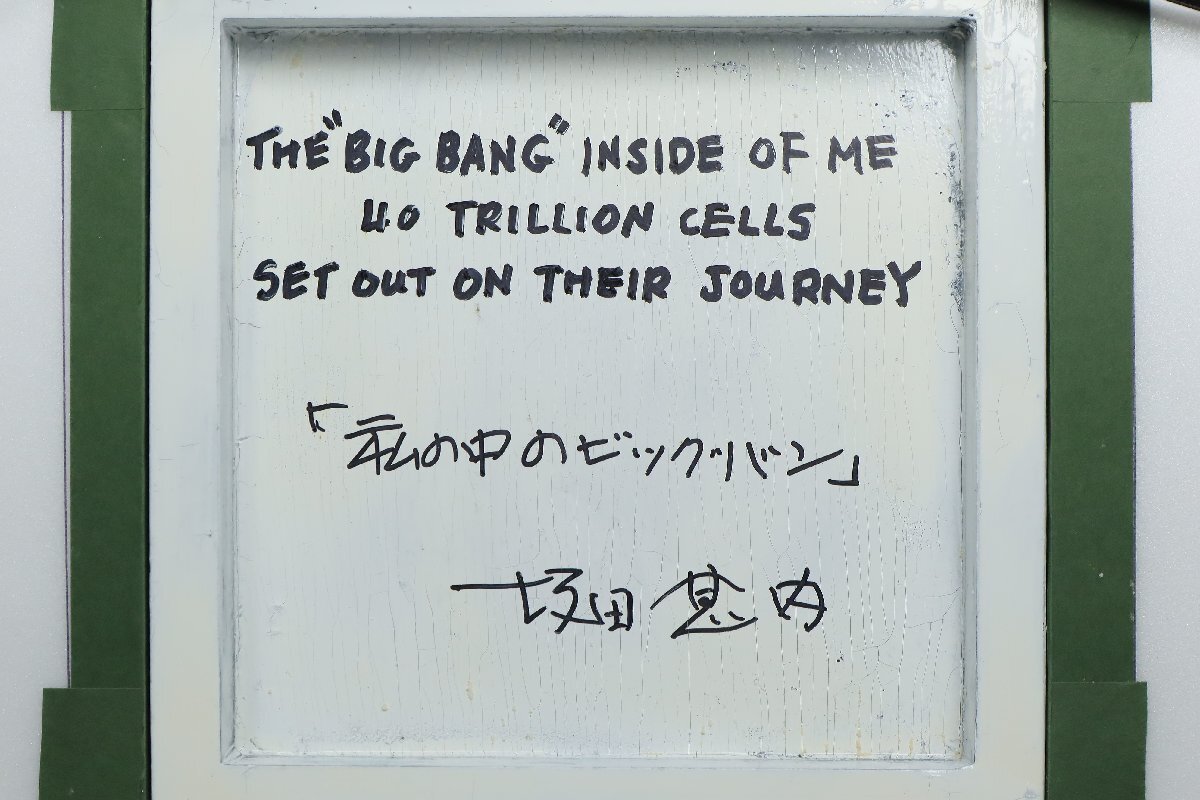 THE "BIG BANG" INSIDE OF ME
40 TRILLION CELLS
SET OUT ON THEIR JOURNEY
「私の中のビックバン」
坂田甚内